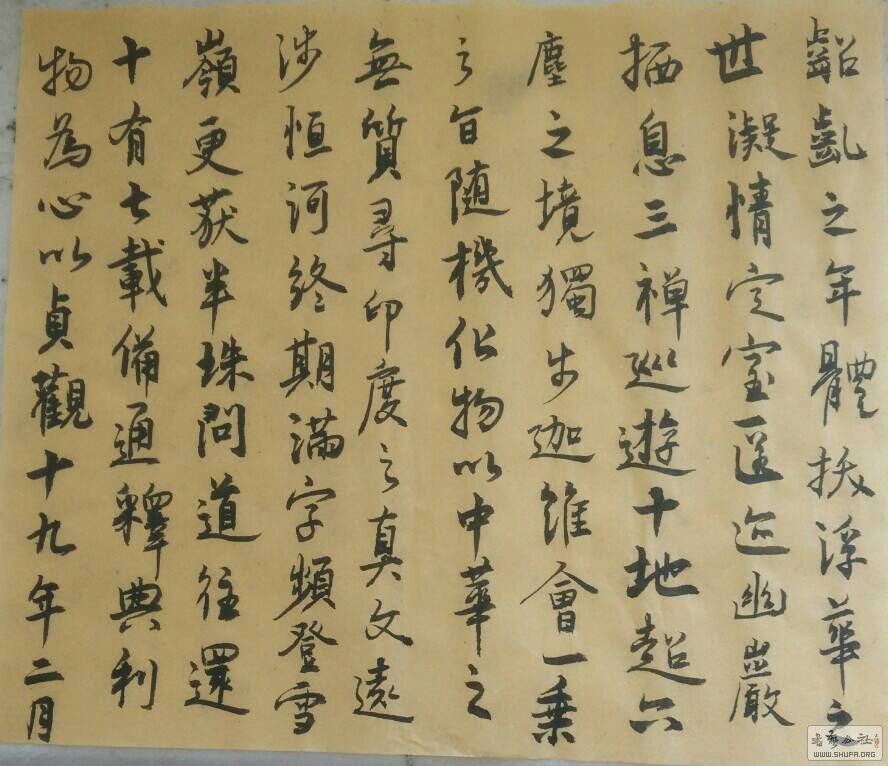 齠齔之年體拔浮華之
世凝情定室匿迹幽巖
栖息三禪巡遊十地超六
塵之境獨步迦維會一乘
之旨隨機化物以中華之
無質尋印度之真文遠
涉恒河終期滿字頻登雪
嶺更獲半珠問道往還
十有七載備通釋典利
物為心以貞觀十九年二月
WWW.SHUFA.ORG